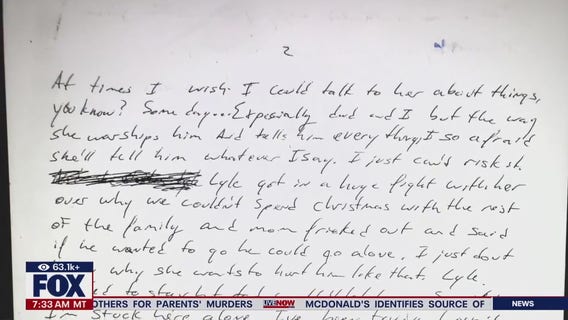 2
At times I wish I could talk to her about things,
you know? Some day... Expecially dad and I but the way
she warships him And tells him everything, I so afraid
she'll tell him whatever I say. I just can's risk it.
Lyle got in a huge fight with her
over why we couldn't spend Christmas with the rest
of the family and mom freaked out and said
if he wanted to go he could go alone. I just dout
why she wants to hurt him like that. Lyle
to stay but
I'm stuck here alone. I've been trying
63.1k+
FOX
7:33 AM MT
OTHERS FOR PARENTS' MURDERS LIVENOW MCDONALD'S IDENTIFIES SOURCE OF
NEWS